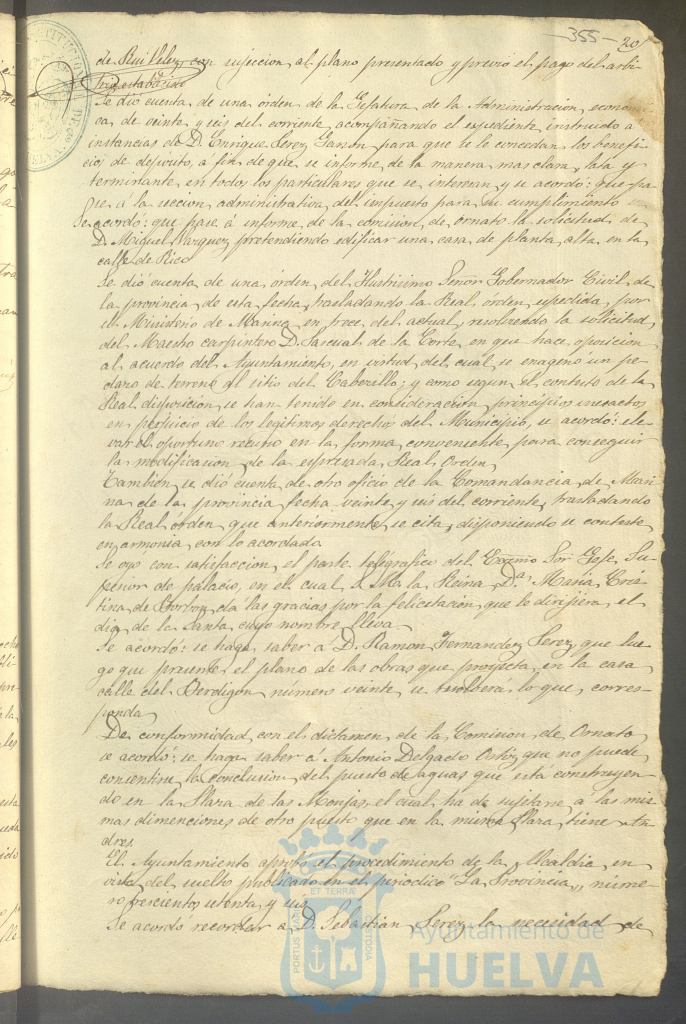 355 - 20
de Rui Velez con sujeccion al plano presentado y previo el pago del arbi-
trio establecido
Se dió cuenta de una órden de la Gefatura de la Administracion económi-
ca de veinte y seis del corriente acompañando el espediente instruido a
instancias de D. Enrique Perez para que se le concedan los benefi-
cios de depósito, a fin de que se informe de la manera mas clara, lata y
terminante en todos los particulares que se interesan y se acordó: que pa-
se a la seccion administrativa del impuesto para su cumplimiento
Se acordó: que pase a informe de la comision de ornato la solicitud de
D. Miguel Vazquez pretendiendo edificar una casa de planta alta en la
calle de Rico
Se dió cuenta de una órden del Ilustrisimo Señor Gobernador Civil de
la provincia de esta fecha, trasladando la Real órden espedida por
el Ministerio de Marina en trece del actual, resolviendo la solicitud
del Maestro carpintero D. Pascual de la Corte, en que hace oposicion
al acuerdo del Ayuntamiento, en virtud del cual se enagenó un pe-
dazo de terreno al sitio del Cabezillo; y como segun el contesto de la
Real disposicion se han tenido en consideracion principios inexactos
en perjuicio de los legitimos derechos del Municipio, se acordó: ele-
var el oportuno recurso en la forma conveniente para conseguir
la modificacion de la espresada Real Orden
Tambien se dió cuenta de otro oficio de la Comandancia de Mari-
na de la provincia fecha veinte y seis del corriente, trasladando
la Real órden que anteriormente se cita, disponiendo se conteste
en armonia con lo acordado
Se oyó con satisfaccion el parte telegráfico del Excmo Sor Gefe Su-
perior de palacio, en el cual S. M. la Reina Dª Maria Cris-
tina de Borbon dá las gracias por la felicitacion que le dirijiera el
dia de la Santa cuyo nombre lleva.
Se acordó: se haga saber a D. Ramon Fernandez Perez que lue-
go que presente el plano de las obras que proyecta en la casa
calle del Berdigon número veinte se resolverá lo que corres-
ponda
De conformidad con el dictamen de la Comision de Ornato
se acordó: se haga saber á Antonio Delgado Ortiz que no puede
consentirse la conclusion del puesto de aguas que está construyen-
do en la Plaza de las Monjas, el cual ha de sujetarse a las mis-
mas dimenciones de otro puesto que en la misma Plaza tiene An-
dres
El Ayuntamiento aprobó el procedimiento de la Alcaldia en
vista del suelto publicado en el periodico "La Provincia,, núme-
ro trescientos, ochenta y seis
Se acordó recordar a D. Sebastian Perez la necesidad de
PORTUS MARIS ET TERRAE CUSTODIA
Ayuntamiento de
HUELVA